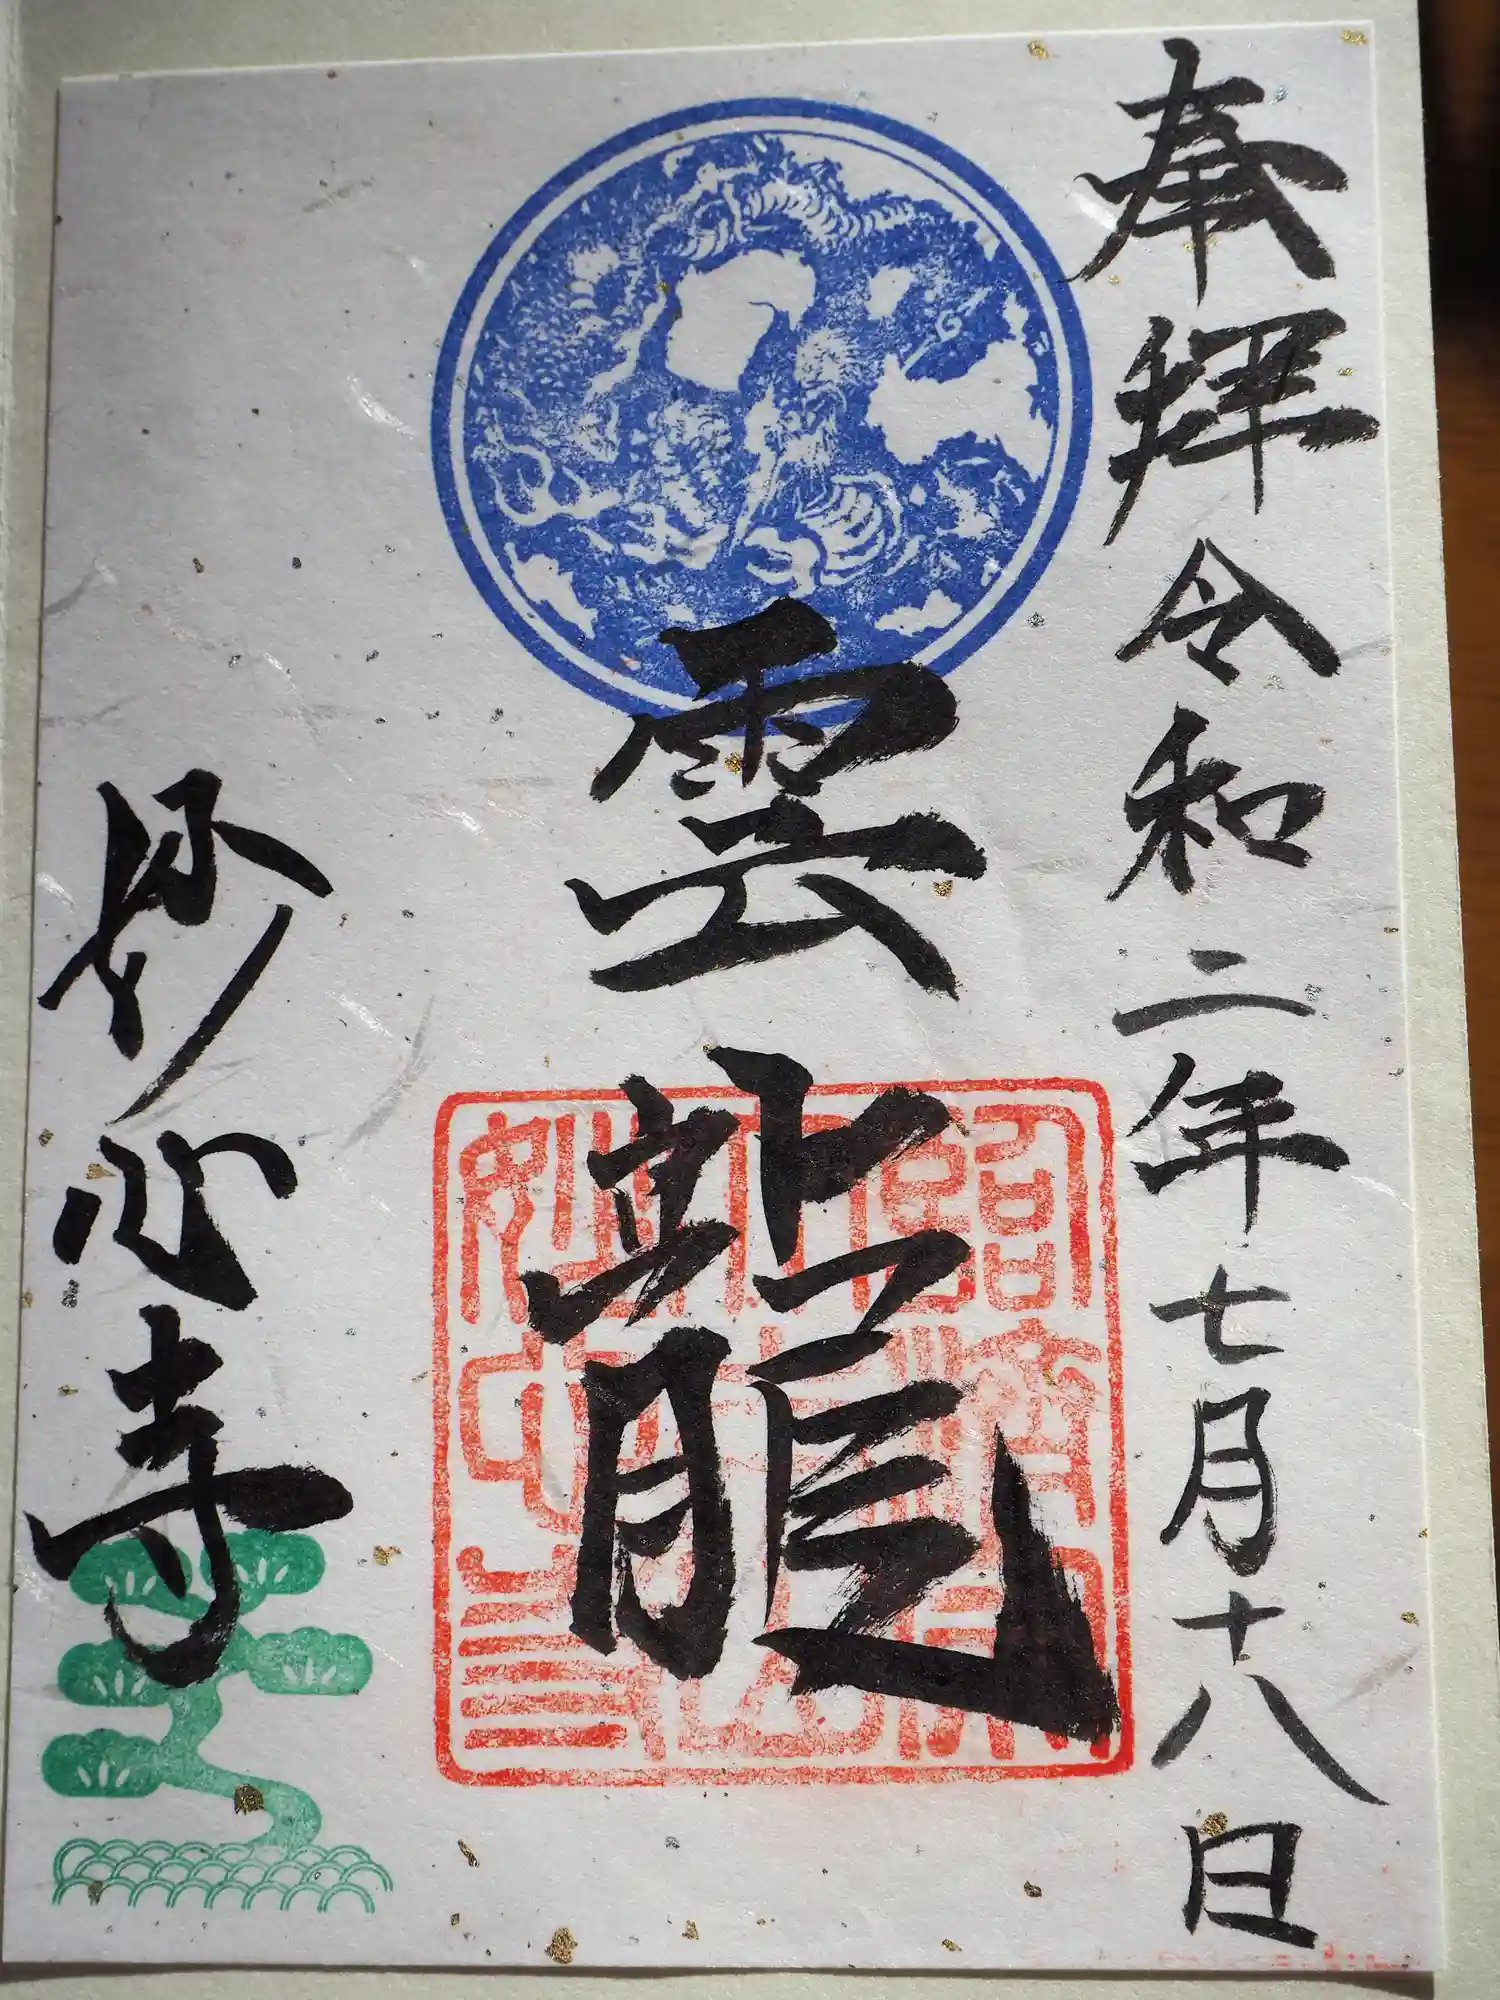 奉拝 令和二年七月十八日
雲龍
妙心寺